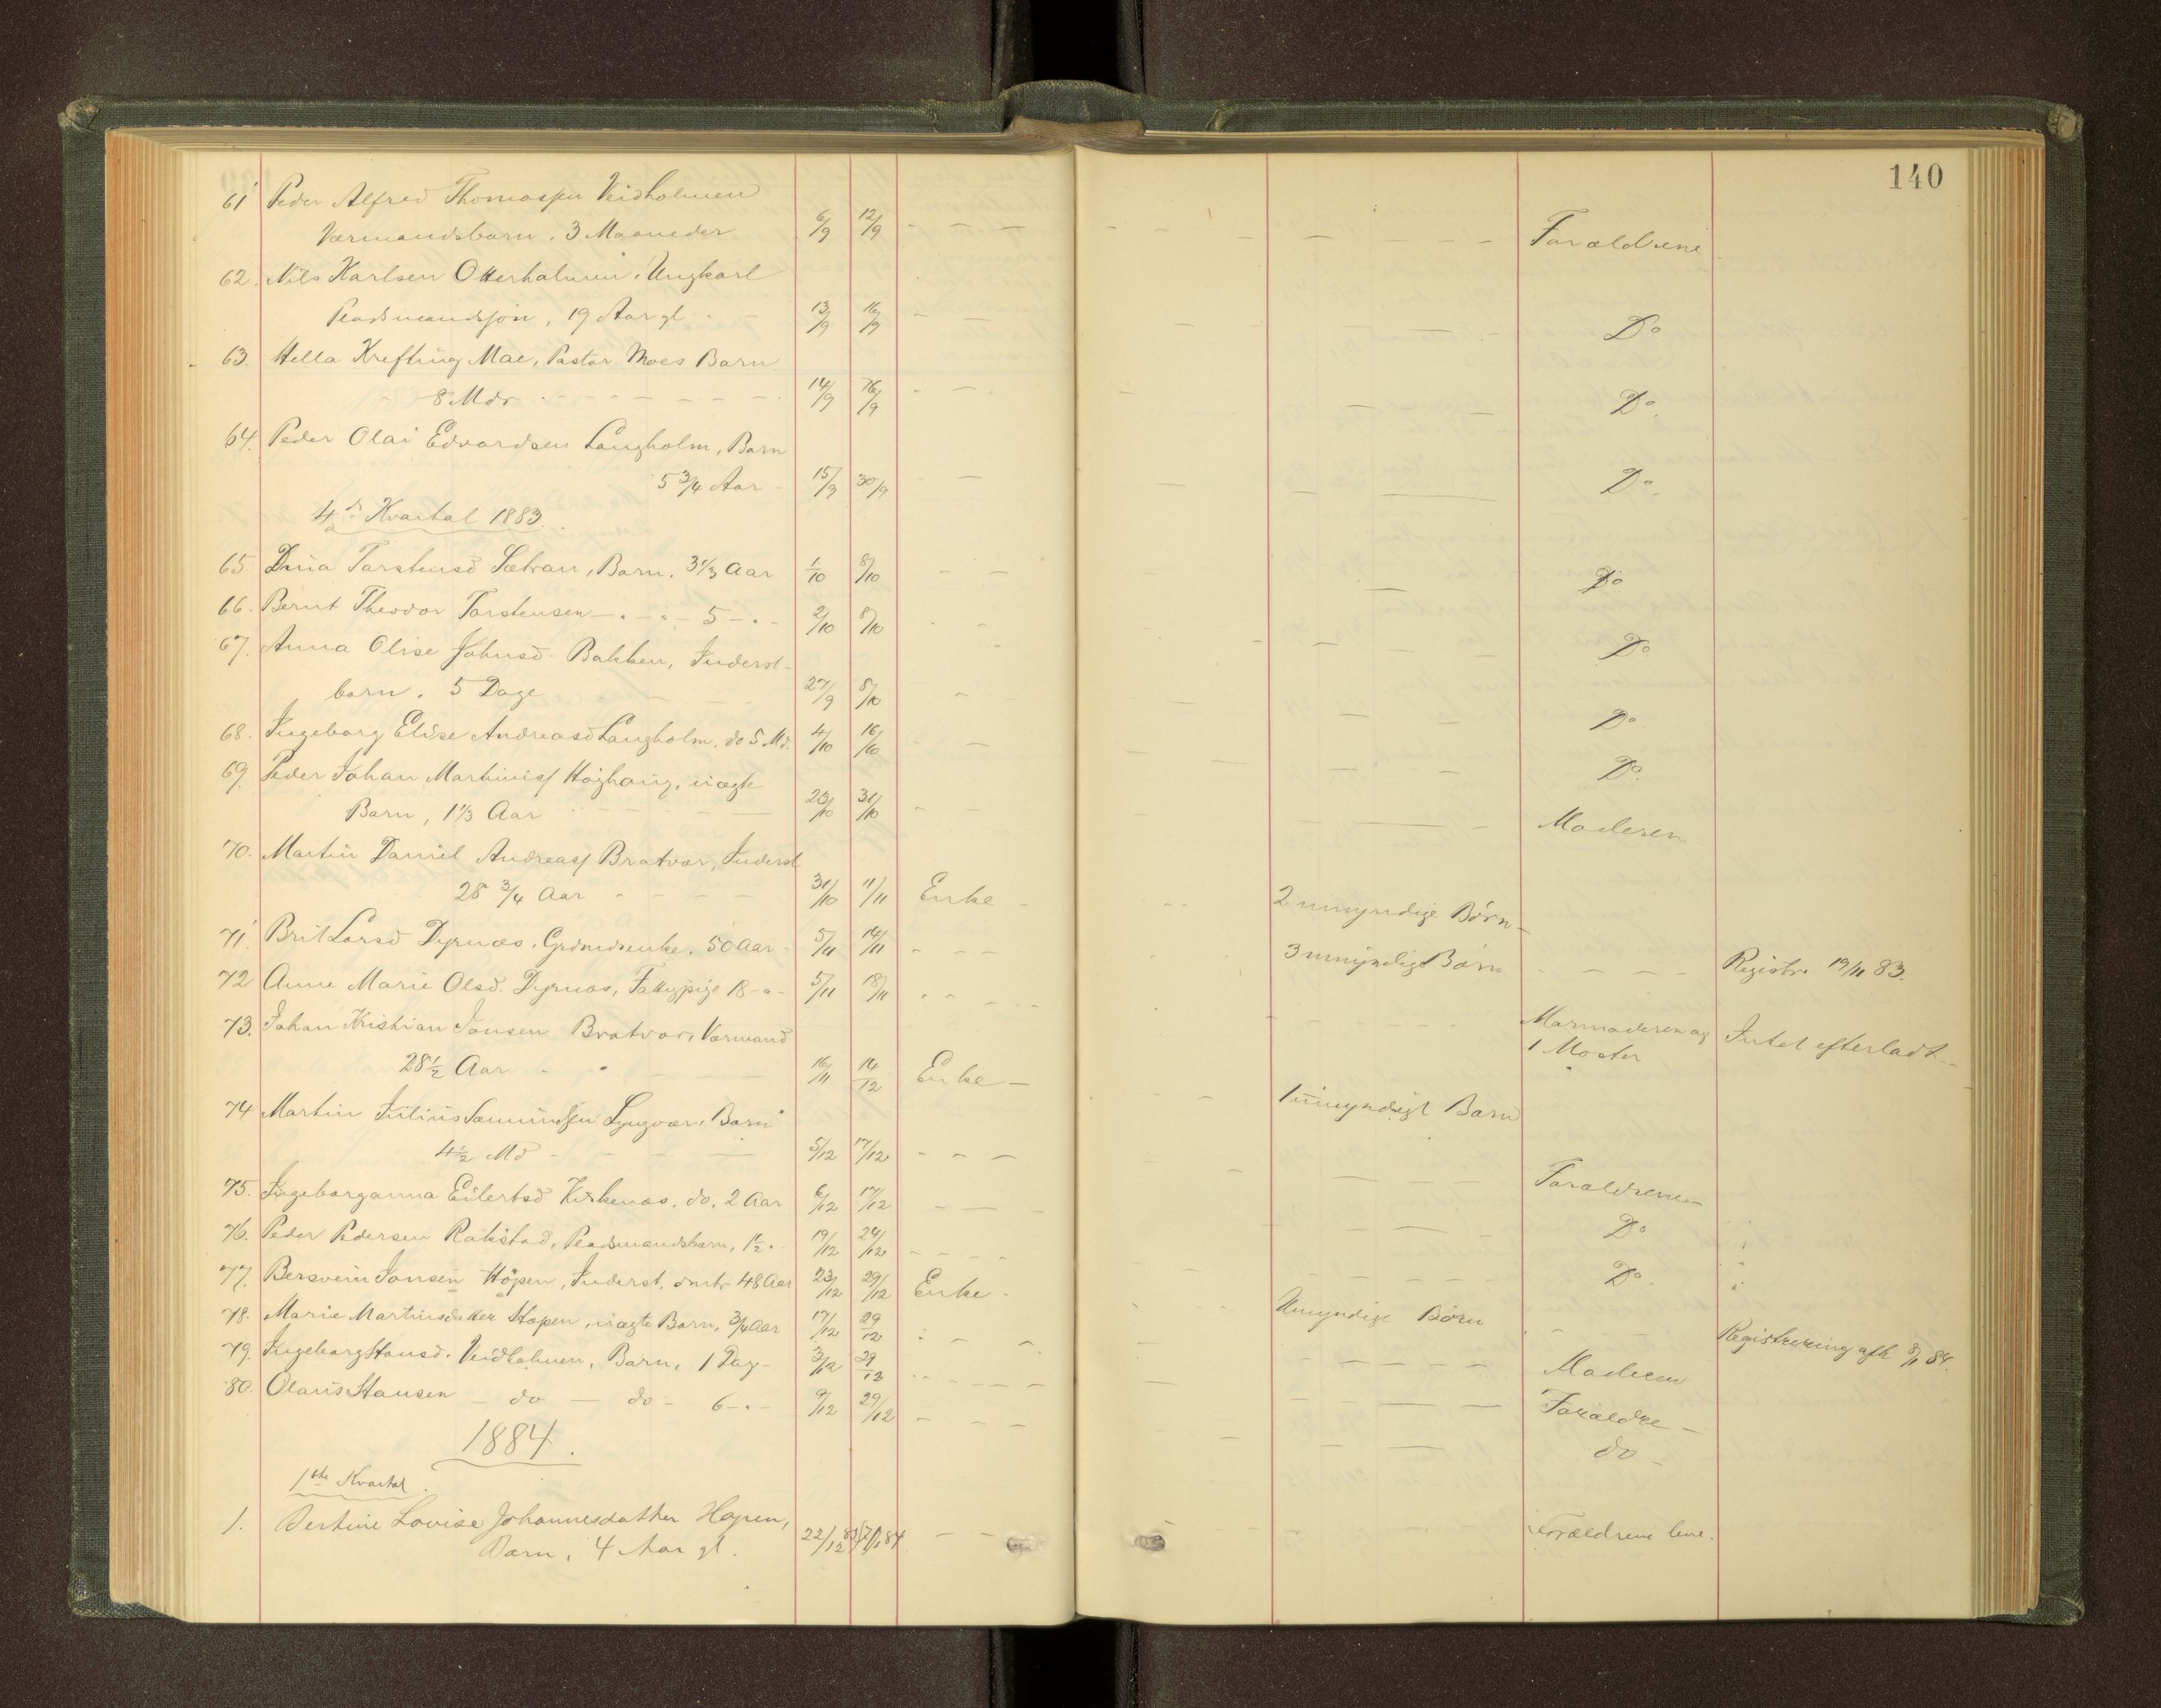 140
61 Peder Alfred Thomassen Veidholmen
Værmandsbarn. 3 Maaneder 6/9 12/9 - - - Forældrene
62. Nils Karlsen Otterholmen. Ungkarl
Pladsmandssøn, 19 Aar gl 13/9 16/9 - - - Do
63. Hella Krefting Moe, Pastor Moes Barn
8 Mdr 14/9 16/9 - - - Do.
64. Peder Olai Edvardsen Langholm, Barn
5 3/4 Aar 15/9 30/9 - - - Do.
4de Kvartal 1883.
65. Dina Torstensd Sætran, Barn. 3 1/3 Aar 1/10 8/10 - - Do
66. Bernt Theodor Torstensen - " - " - 5 - " - 2/10 8/10 - - Do.
67. Anna Olise Johnsd. Bakken, Inderst-
barn. 5 Dage 27/9 8/10 - - Do
68. Ingeborg Elise Andreasd Langholm. do 5 Md. 4/10 16/10 - - Do.
69. Peder Johan Martinius Høghaug, uægte
Barn, 1 1/3 Aar 23/10 31/10 - - Moderen
70. Martin Daniel Andreass Bratvær, Inderst
28 3/4 Aar 31/10 11/11 Enke - 2 umyndige Børn -
71. Brit Larsd Dyrnæs. Grdmdsenke. 50 Aar - 5/11 14/11 - - - 3 umyndige Børn - - - Registr. 19/11 83.
72 Anne Marie Olsd. Dyrnæs, Fattigpige 18 - " - 5/11 18/11 - - - Mormoderen og Intet efterladt -
1 Moster
73. Johan Kristian Jonsen Bratvær, Værmand
28 1/2 Aar 16/11 14/12 Enke - 1 umyndigt Barn
74 Martin Julius Samundsen Lyngvær. Barn
4 1/2 Md - - - 5/12 17/12 - - - Forældrene -
75. Ingeborganna Eilertsd Kirkenæs. do. 2 Aar 6/12 17/12 - - - Do
76. Peder Pedersen Rokstad, Pladsmandsbarn, 1 1/2 " - 19/12 24/12 - - - Do.
77. Bersvein Jonsen Hopen, Inderst. 48 Aar 23/12 29/12 Enke - Umyndige Børn - - Registrering afh 8/1 84.
78. Marie Martinsdatter Hopen, uægte Barn, 3/4 Aar 17/12 29/12 - - - Moderen
79. Ingeborg Hansd. Veidholmen, Barn, 1 Dag - 3/12 29/12 - - - Forældre -
80. Olaus Hansen - do - do - 6 - " - 9/12 29/12 - - - do -
1884.
1ste Kvartal.
1. Louise Johannesdatter Hopen,
Barn, 4 Aar gl. 22/12 83 7/1 84 - - Forældrene leve.